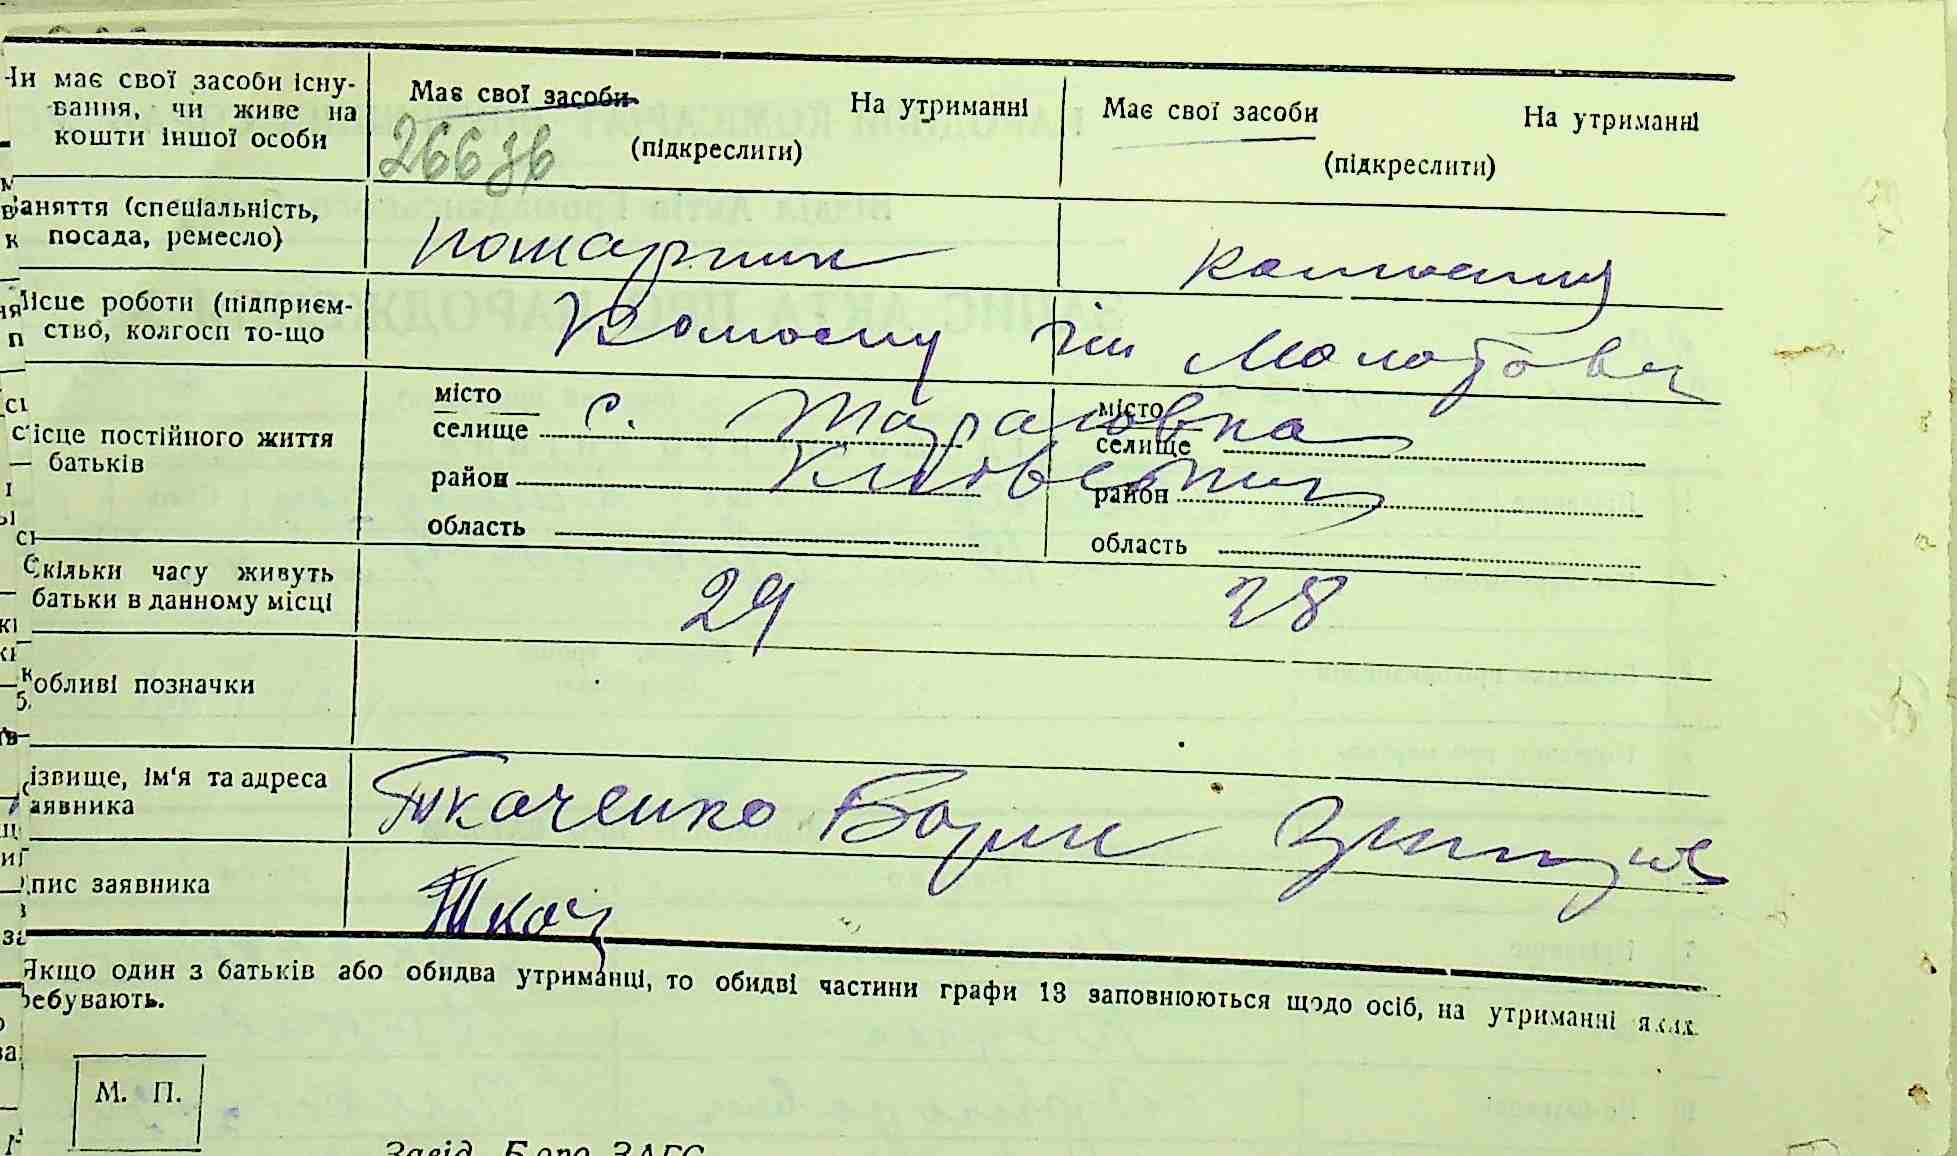 Чи має свої засоби існу-
вання, чи живе на
кошти іншої особи
Має свої засоби
На утриманні
(підкреслити)
266 зв
Має свої засоби
На утриманні
(підкреслити)
Заняття (спеціальність,
посада, ремесло)
пожарник
Місце роботи (підприєм-
ство, колгосп то-що
Колгоспу ім Молотова
Місце постійного життя
батьків
місто
селище
с. Тарасовка
район
область
місто
селище
район
область
Скільки часу живуть
батьки в данному місці
29
28
обливі позначки
ізвище, ім'я та адреса
аявника
Ткаченко Борис
пис заявника
Ткач
Якщо один з батьків або обидва утриманці, то обидві частини графи 13 заповнюються щодо осіб, на утриманні яких
ребувають.
М. П.
Завід. Бюро ЗАГС